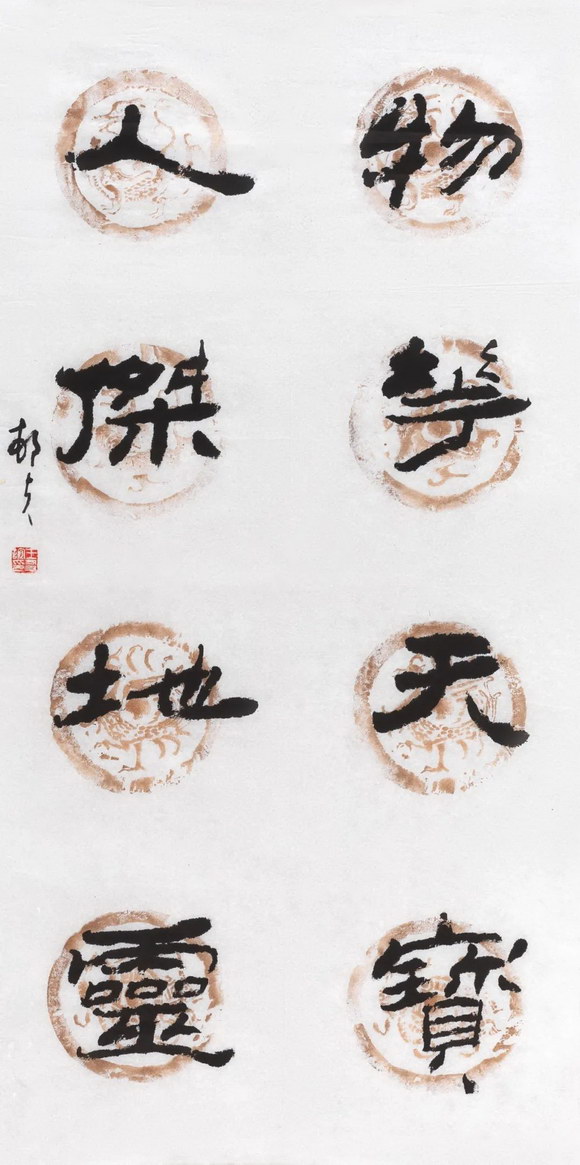 物華天寶
人傑地靈
邨夫